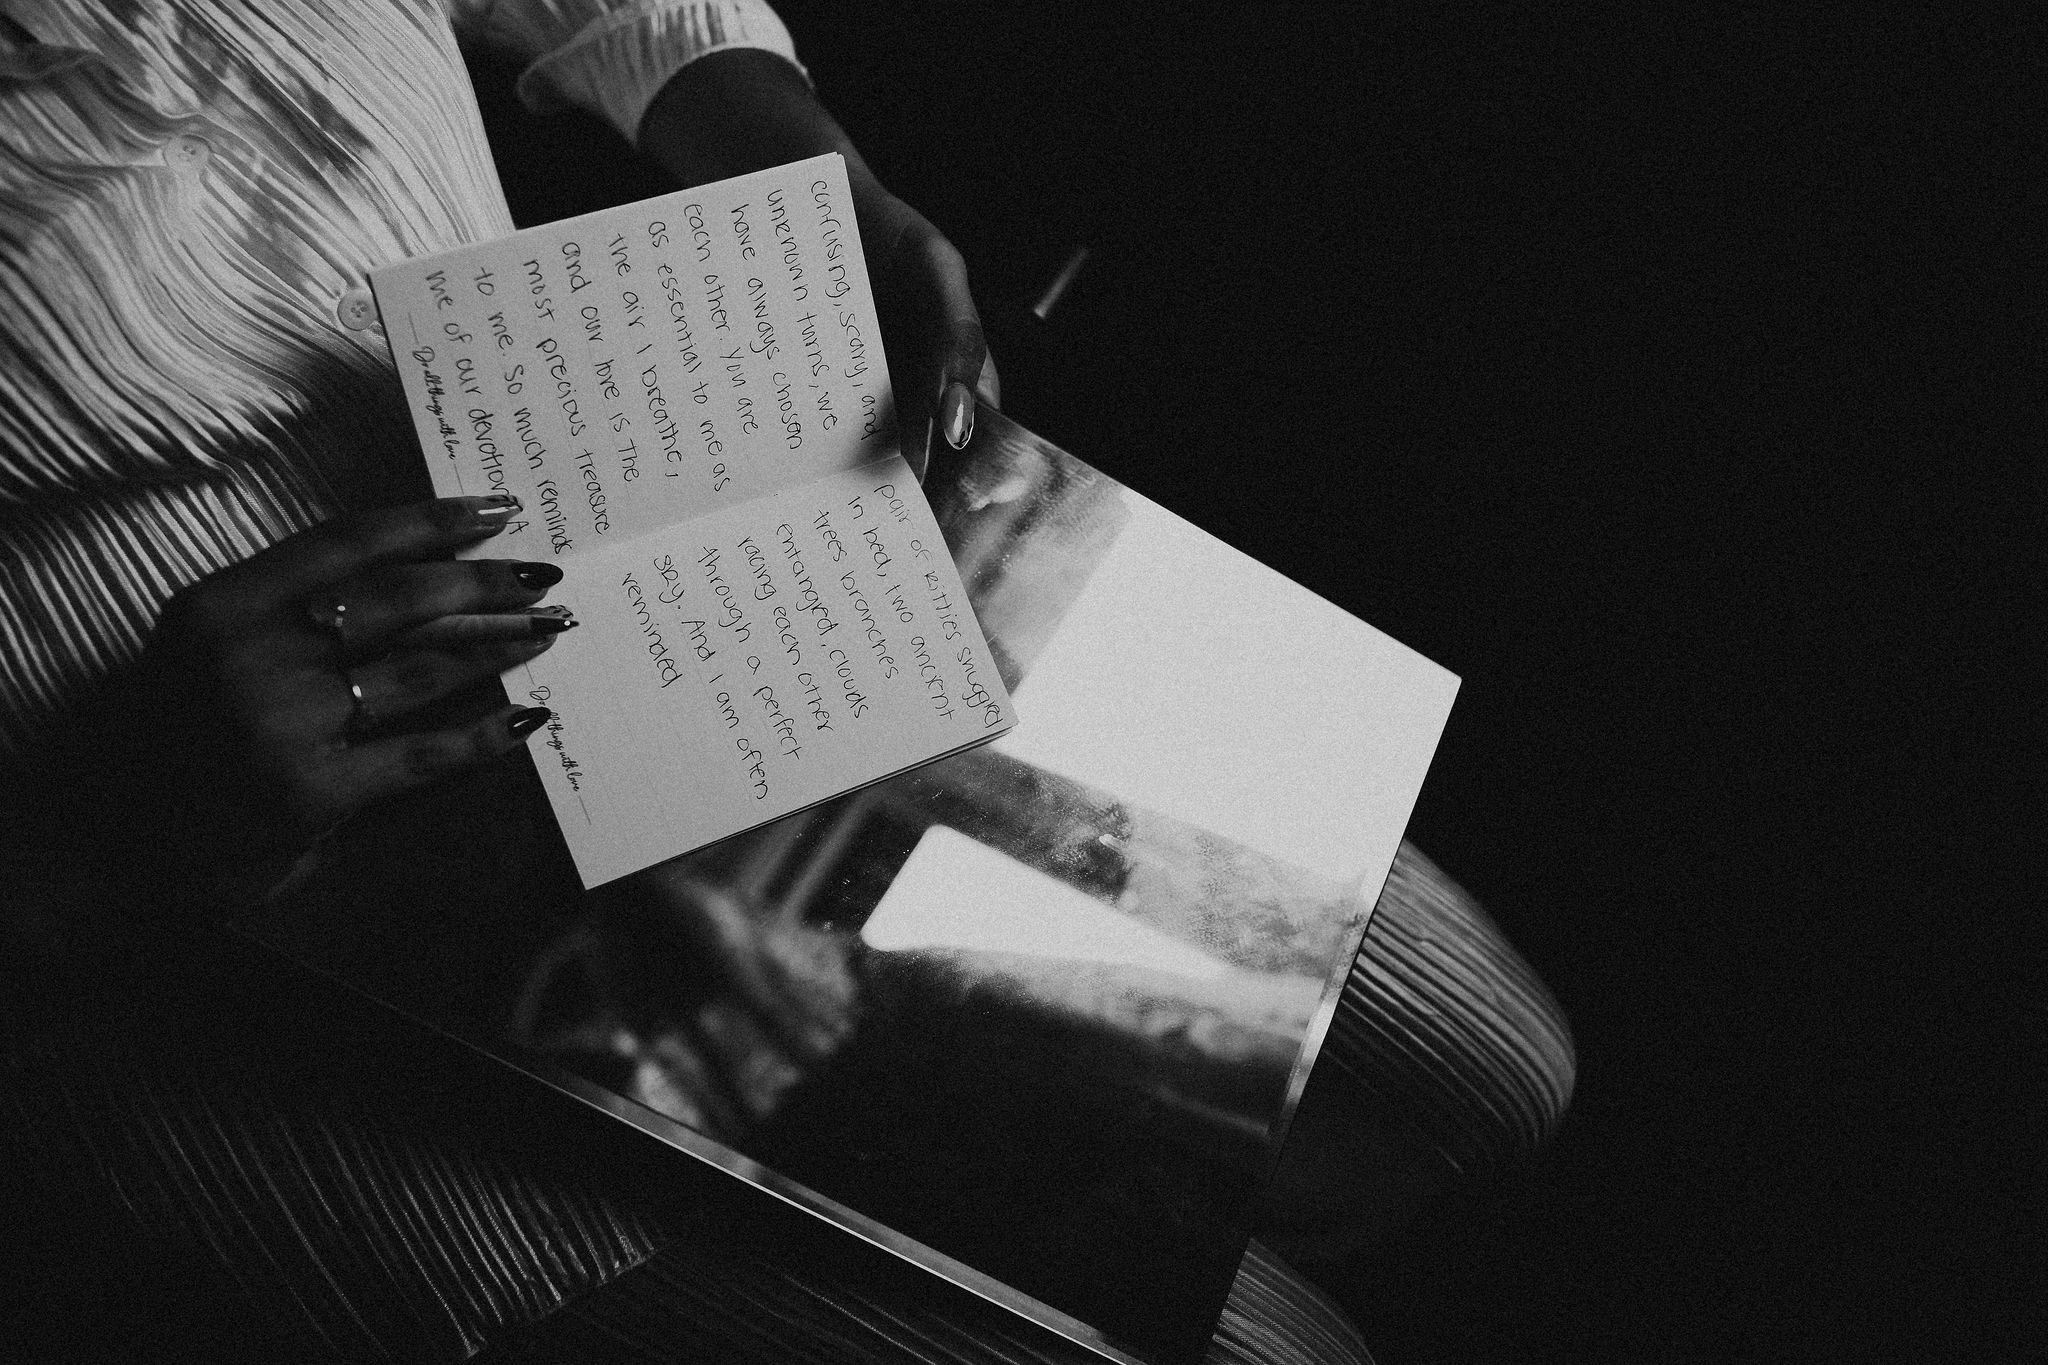 confusing, scary, and
unknown turns, we
have always chosen
each other. You are
as essential to me as
the air I breathe,
and our love is the
most precious treasure
to me. So much reminds
me of our devotion. A
Do all things with love
pair of kitties snuggled
in bed, two ancient
trees branches
entangled, clouds
racing each other
through a perfect
sky. And I am often
reminded
Do all things with love